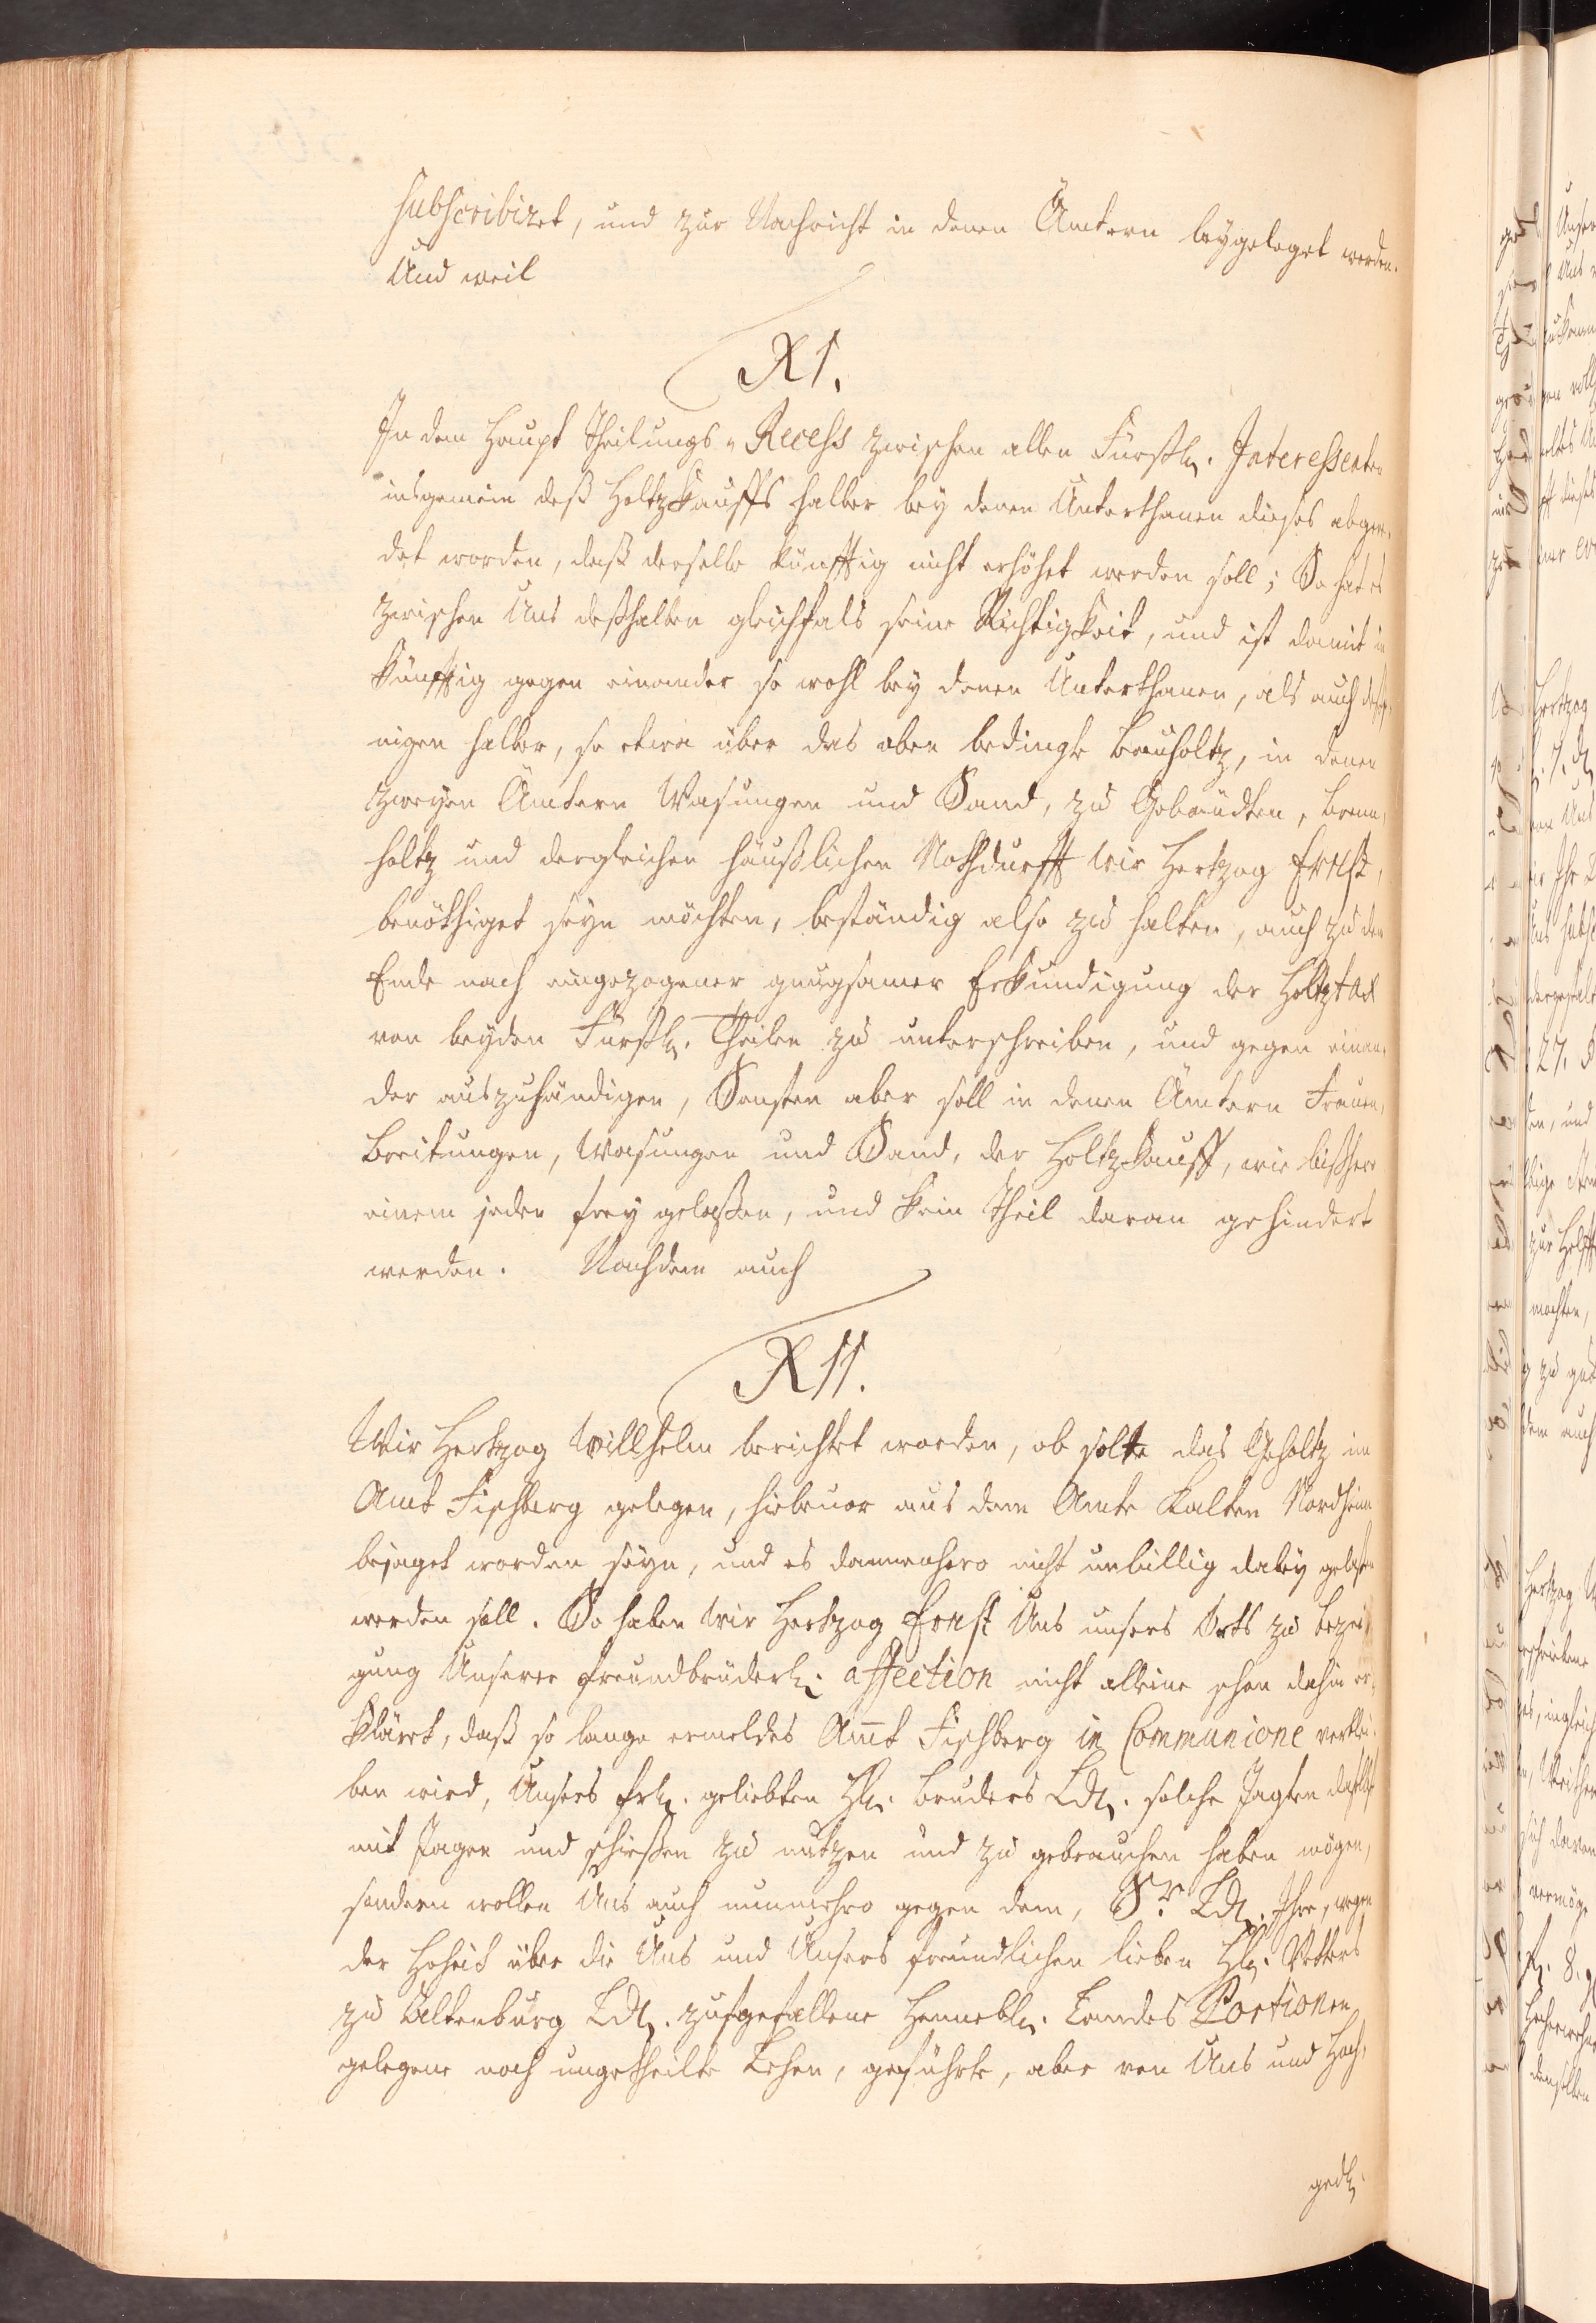 subscribiret, und zur Nachricht in denen Ämtern beygeleget werden.
Und weil
XI.
In dem Haupt Theilungs-Recess zwischen allen Fürstl. Interessenten
insgemein deß Holtzkauffs halber bey denen Unterthanen dieses abgere-
det worden, daß derselbe künfftig nicht erhöhet werden soll; So hat es
zwischen Uns deßhalben gleichfals seine Richtigkeit, und ist damit in
künfftig gegen einander so wohl bey denen Unterthanen, als auch desje-
nigen halber, so etwa über das oben bedingte Bauholtz, in denen
zweyen Ämtern Wasungen und Sand, zu Gebäudten, Brenn-
holtz und dergleichen häußlichen Nothdurfft wir Hertzog Ernst,
benöthiget seyn möchten, beständig also zu halten, auch zu dem
Ende nach eingezogener gnugsamer Erkundigung der Holtztax
von beyden Fürstl. Theilen zu unterschreiben, und gegen einan-
der auszuhändigen, Sonsten aber soll in denen Ämtern Frauen-
Breitungen, Wasungen und Sand, der Holtzkauff, wie bißhero
einem jeden frey gelaßen, und kein Theil daran gehindert
werden. Nachdem auch
XII.
Wir Hertzog Willhelm berichtet worden, ob solte das Geholtz im
Amt Fischberg gelegen, hiebevor aus dem Amte Kalten Nordheim
bejaget worden seyn, und es dannenhero nicht unbillig dabey gelaßen
werden soll. So haben wir Hertzog Ernst Uns unsers Orts zu bezei-
gung Unserer freundbrüderl. affection nicht alleine schon dahin er-
kläret, daß so lange ermeldes Amt Fischberg in Communione verblei-
ben wird, Unsers frl. geliebten Hl. Bruders Ldl. solche Jagten daselbst
mit Jagen und schießen zu nutzen und zu gebrauchen haben mögen,
sondern wollen Uns auch nunmehro gegen dem, Sr. Ldl. Ihre, wegen
der Hoheit über die Uns und Unsers freundlichen lieben Hl. Vetters
zu Altenburg Ldl. zugefallene Hennebl. Landes Portionen
gelegene noch ungetheilte Lehen, geführte, aber von Uns und Hoch-
gedl.